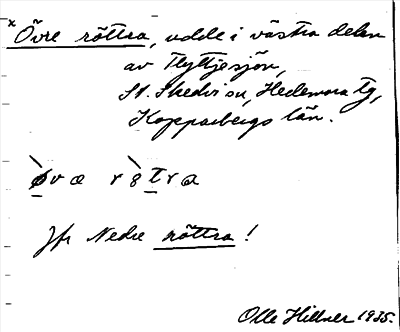 × Övre röttra, udde i västra delen
av Flyttjesjön,
St. Skedvi sn, Hedemora tg,
Kopparbergs län.
òvæ r
Jfr Nedre röttra!
Olle Hillner 1935.